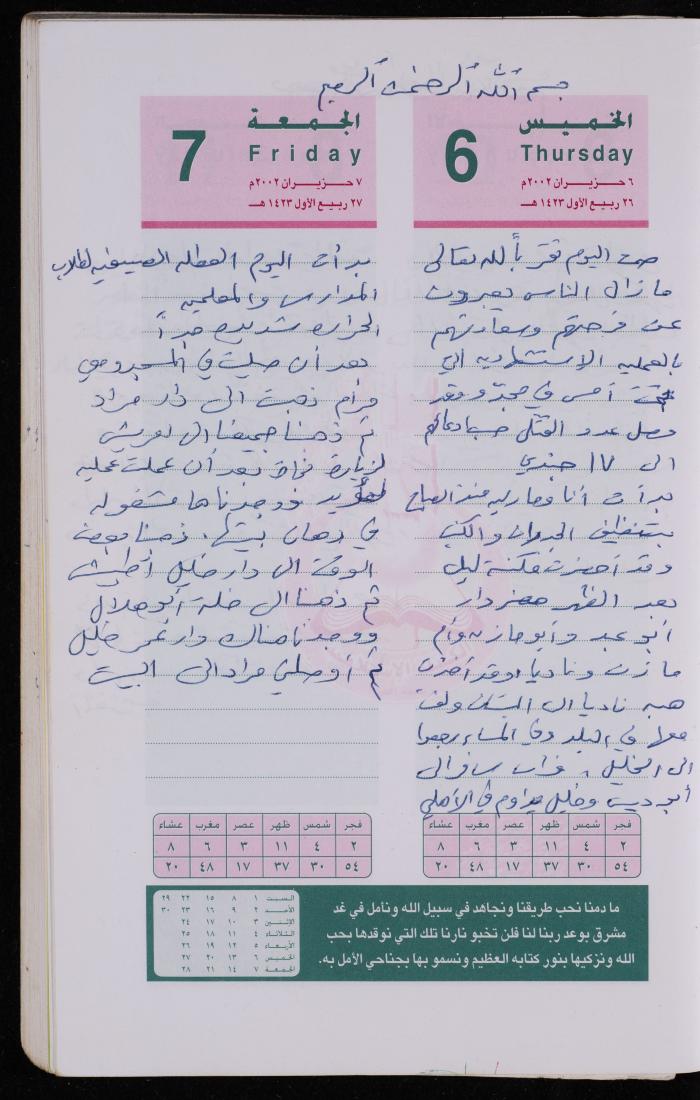 بسم الله الرحمن الرحيم
الخميس
6
Thursday
٦ حـزيـران ٢٠٠٢م
٢٦ ربيع الأول ١٤٢٣ هـ
صمت اليوم تقرباً لله تعالى
ما زال الناس يعبرون
عن فرحتهم وسعادتهم
بالعملية الاستشهادية التي
تمت أمس في مجدو وقد
وصل عدد القتلى حسب ادعائهم
الى ١٧ جندي
بدأت أنا وماريه منذ الصباح
بتنظيف الجدران والكنب
وقد أحضرت مكنسة ليلى
بعد الظهر حضر دار
أبو عبد وأبو مازن وأم
مازن وناديا وقد أخذت
هبه ناديا الى البستان ولفت
معها في البلد وفي المساء رجعوا
الى الخليل، فراس سافر الى
أبو ديس وخليل مداوم في الأهلي
فجر شمس ظهر عصر مغرب عشاء
٢ ٤ ١١ ٣ ٦ ٨
٥٤ ٣٠ ٣٧ ١٧ ٤٨ ٢٠
الجمعة
7
Friday
٧ حـزيـران ٢٠٠٢م
٢٧ ربيع الأول ١٤٢٣ هـ
بدأت اليوم العطله الصيفيه لطلاب
المدارس والمعلمين
الحراره شديده جداً
بعد أن صليت في المسجد ومعي
مرام ذهبت الى دار مراد
ثم ذهبنا جميعنا الى
لزيارة بعد أن عملت عمليه
فوجدناها مشغوله
في دهان بيتها. ذهبنا بعض
الوقت الى دار خليل
ثم ذهبنا الى خلة أبو هلال
ووجدنا هناك دار عمر خليل
ثم أوصلني مراد الى البيت
فجر شمس ظهر عصر مغرب عشاء
٢ ٤ ١١ ٣ ٦ ٨
٥٤ ٣٠ ٣٧ ١٧ ٤٨ ٢٠
ما دمنا نحب طريقنا ونجاهد في سبيل الله ونأمل في غد
مشرق بوعد ربنا لنا فلن تخبو نارنا تلك التي نوقدها بحب
الله ونزكيها بنور كتابه العظيم ونسمو بها بجناحي الأمل به.
السبت ١ ٨ ١٥ ٢٢ ٢٩
الأحد ٢ ٩ ١٦ ٢٣ ٣٠
الاثنين ٣ ١٠ ١٧ ٢٤
الثلاثاء ٤ ١١ ١٨ ٢٥
الأربعاء ٥ ١٢ ١٩ ٢٦
الخميس ٦ ١٣ ٢٠ ٢٧
الجمعة ٧ ١٤ ٢١ ٢٨